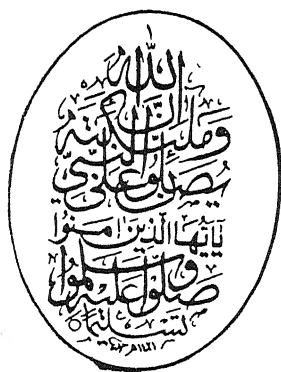 إن الله
وملئكته
يصلون على النبي
يايها الذين امنوا
صلوا عليه وسلموا
تسليما